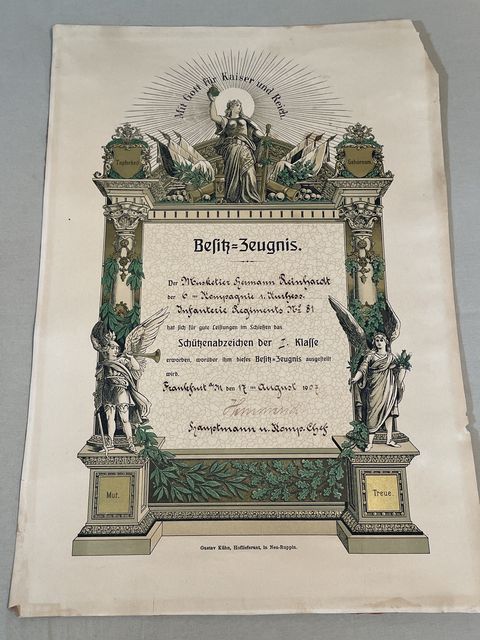 Mit Gott für Kaiser und Reich.
Tapferkeit
Gehorsam.
Besitz=Zeugnis.
Der Musketier Hermann Reinhardt
der 6ten Kompagnie 1. Kurhess.
Infanterie Regiments No 81
hat sich für gute Leistungen im Schießen das
Schützenabzeichen der I. Klasse
erworben, worüber ihm dieses Besitz=Zeugnis ausgestellt
wird.
Frankfurt a/M den 17ten August 1907
Hauptmann u. Komp. Chef
Mut.
Treue.
Gustav Kühn, Hoflieferant, in Neu-Ruppin.